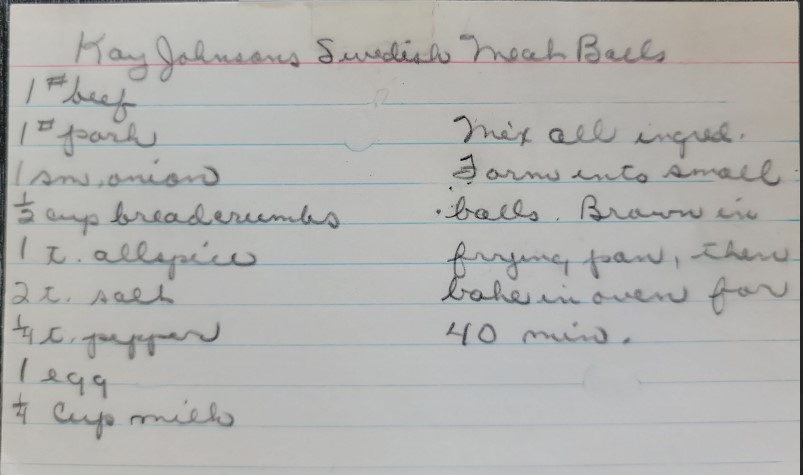 Kay Johnsons Swedish Meat Balls
1# beef
1# pork
1 sm. onion
1/2 cup breadcrumbs
1 t. allspice
2 t. salt
1/4 t. pepper
1 egg
1/4 Cup milk
Mix all ingred.
Form into small
balls. Brown in
frying pan, then
bake in oven for
40 min.